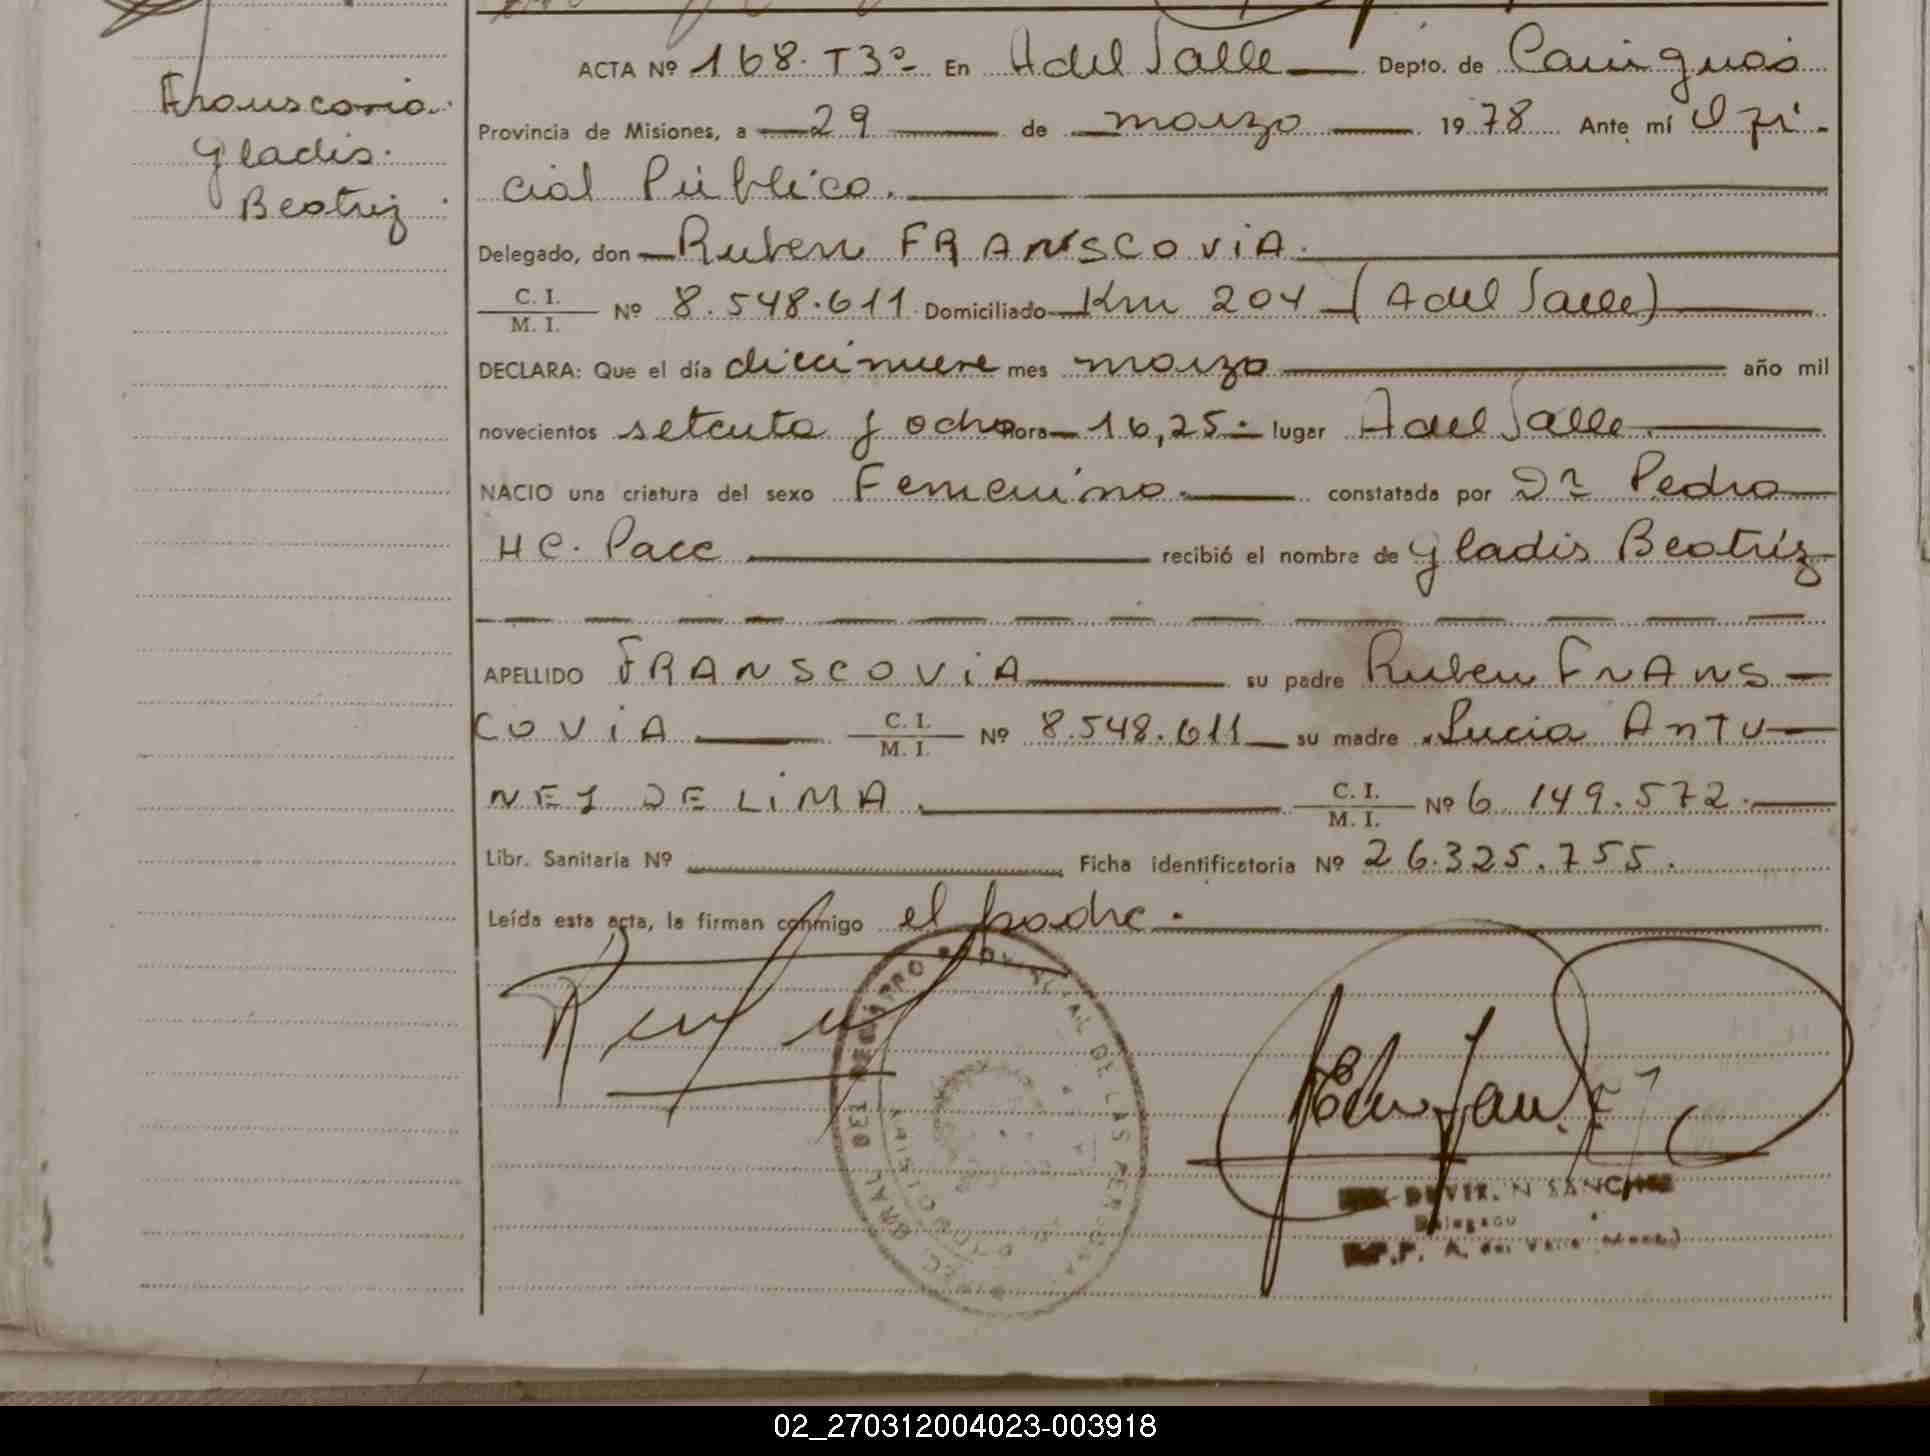 Franscovia
Gladis
Beatriz
ACTA Nº 168. T3º En A del Valle Depto. de Cainguas
Provincia de Misiones, a 29 de marzo 1978 Ante mí Ofi-
cial Público.
Delegado, don Ruben FRANSCOVIA.
C. I.
M. I. Nº 8.548.611 Domiciliado Km 204 (A del Valle)
DECLARA: Que el día diecinueve mes marzo año mil
novecientos setenta y ocho hora 16,25 lugar A del Valle
NACIO una criatura del sexo Femenino constatada por Dr Pedro
HC. Pace recibió el nombre de Gladis Beatríz
APELLIDO FRANSCOVIA su padre Ruben FRANS-
COVIA C. I. M. I. Nº 8.548.611 su madre Lucia ANTU-
NEZ DE LIMA C. I. M. I. Nº 6.149.572.
Libr. Sanitaria Nº Ficha identificatoria Nº 26.325.755.
Leída esta acta, la firman conmigo el padre.
REGISTRO PROVINCIAL DE LAS PERSONAS
N SANCHEZ
Delegado
R.P.P. A. del Valle
02_270312004023-003918